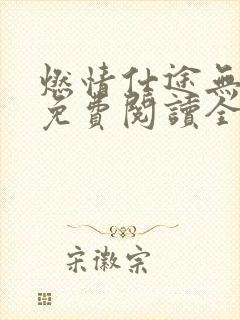 燃情仕途無
免費閱讀全
宋徽宗